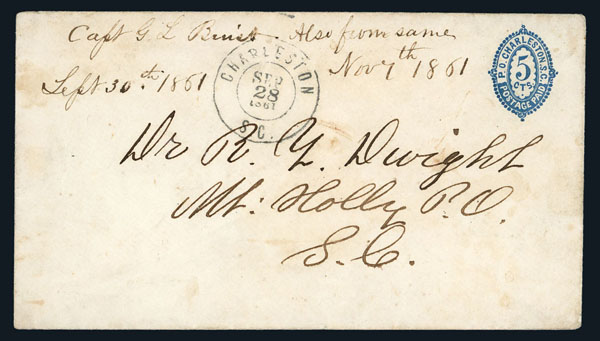 Capt G. L. Buist. Also from same
Sept 30th 1861
Nov 7th 1861
CHARLESTON
SEP
28
1861
S.C.
P.O. CHARLESTON, S.C.
5
CTS.
POSTAGE PAID
Dr R. Y. Dwight
Mt: Holly P.O.
S. C.